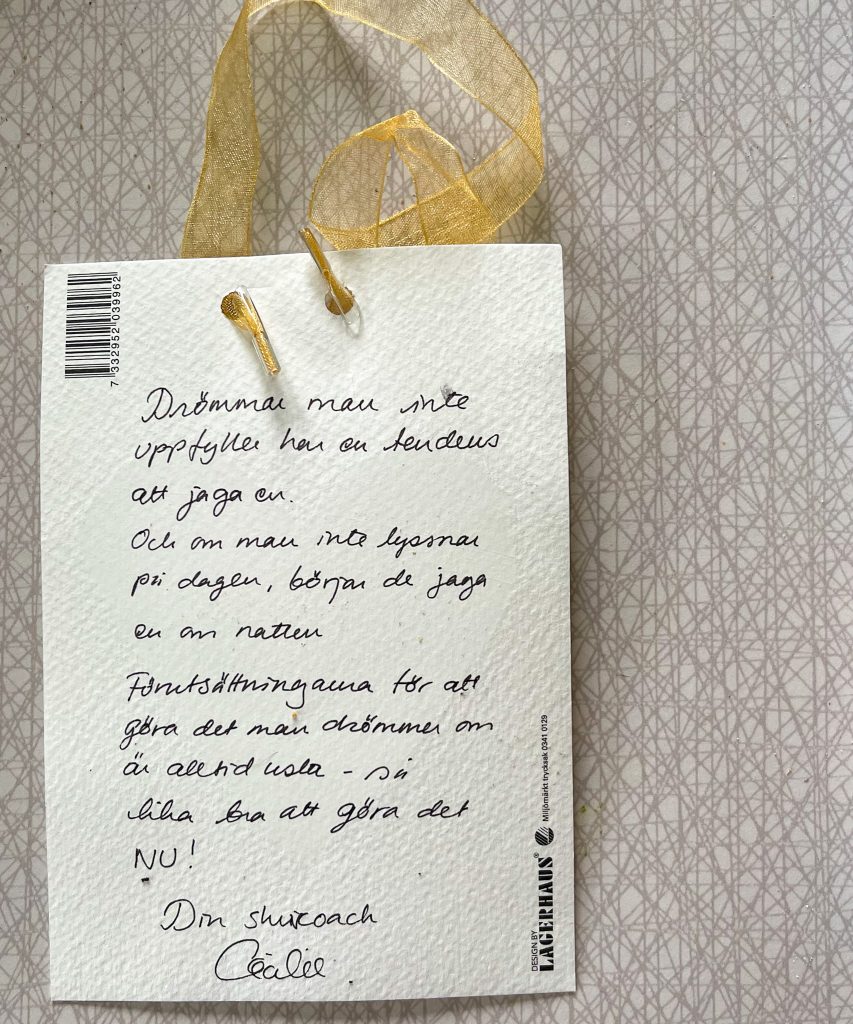 7 332952 039962
Drömmar man inte
uppfyller har en tendens
att jaga en.
Och om man inte lyssnar
på dagen, börjar de jaga
en om natten
Förutsättningarna för att
göra det man drömmer om
är alltid usla - så
lika bra att göra det
NU!
Din skrivcoach
Cecilie
DESIGN BY
LAGERHAUS®
Miljömärkt trycksak 0341 0129